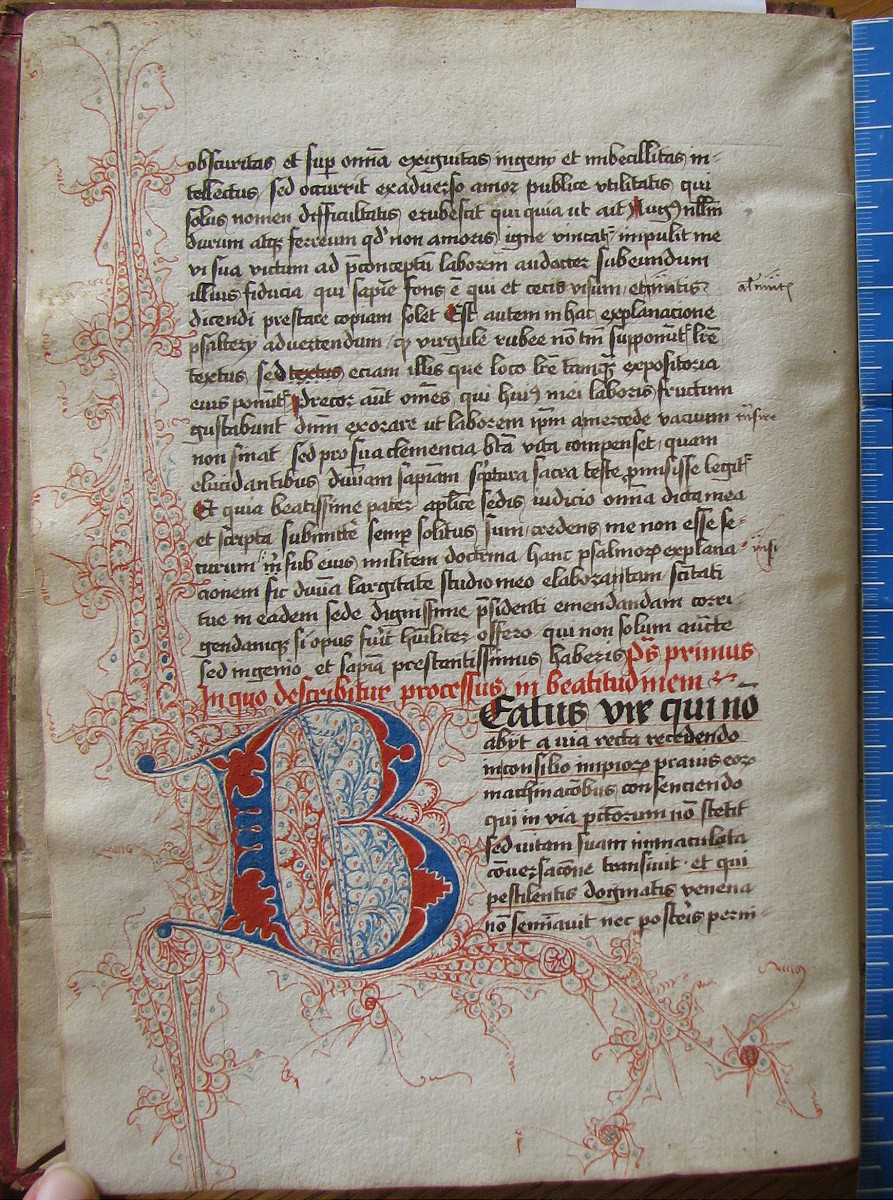 obscuritas et sup om̄ia exiguitas ingenij et imbecillitas in-
tellectus, sed occurrit exaduerso amor publice vtilitatis qui
solus nomen difficultatis erubescit qui quia ut ait Augꝰ nllm̄
durum atqꝫ ferreum qd' non amoris igne vincatᷣ impulit me
vi sua victum ad p̄conceptū laborem audacter subeundum
illius fiducia qui sapīe fons ē qui et cecis visum et mutis
dicendi prestare copiam solet Est autem in hac explanacione
psalterij aduertendum ꝙ virgule rubee nō tm̄ supponūtᷣ lrē
textus, sed textus eciam illis que loco lrē tamqꝫ expositoria
eius ponūtᷣ Precor aūt om̄es qui huiꝰ mei laboris fructum
gustabunt dnm̄ exorare ut laborem ip̄m a mercede vacuum
non sinat sed pro sua clemencia btā vita compenset quam
elucidantibus diuinam sapīam scptura sacra teste promisisse legitᷣ
Et quia beatissime pater aplīce sedis iudicio om̄ia dicta mea
et scripta submittē semp solitus sum credens me non esse se-
curum nī sub eius militem doctrina hanc psalmoꝝ explana-
cionem sic diuīa largitate studio meo elaboratam scitati
tue in eadem sede dignissime p̄sidenti emendandam corri-
gendamqꝫ si opus fuīt hūiliter offero qui non solum aucte
sed ingenio et sapīa prestantissimus haberis Ps̄ primus
In quo describitur processus in beatitudinem
Beatus vir qui nō
abijt a via recta recedendo
in consilio impioꝝ prauis eoꝝ
machinacōibus consenciendo
qui in via pctorum nō stetit
sed vitam suam immaculata
cōuersacōne transiuit et qui
pestilentis dogmatis venena
nō seminauit nec posteris perni-